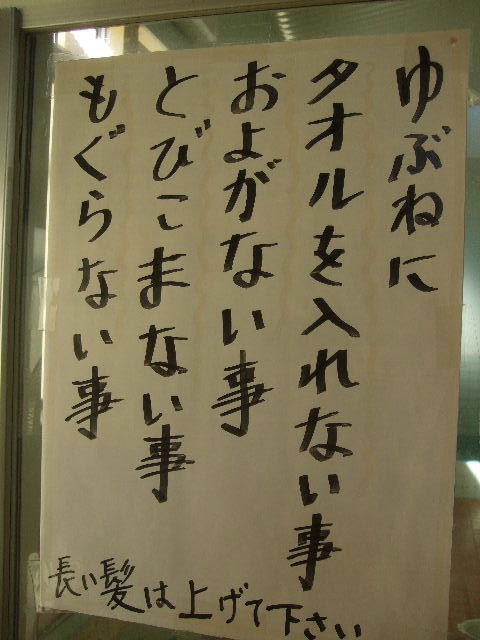 ゆぶねに
タオルを入れない事
およがない事
とびこまない事
もぐらない事
長い髪は上げて下さい